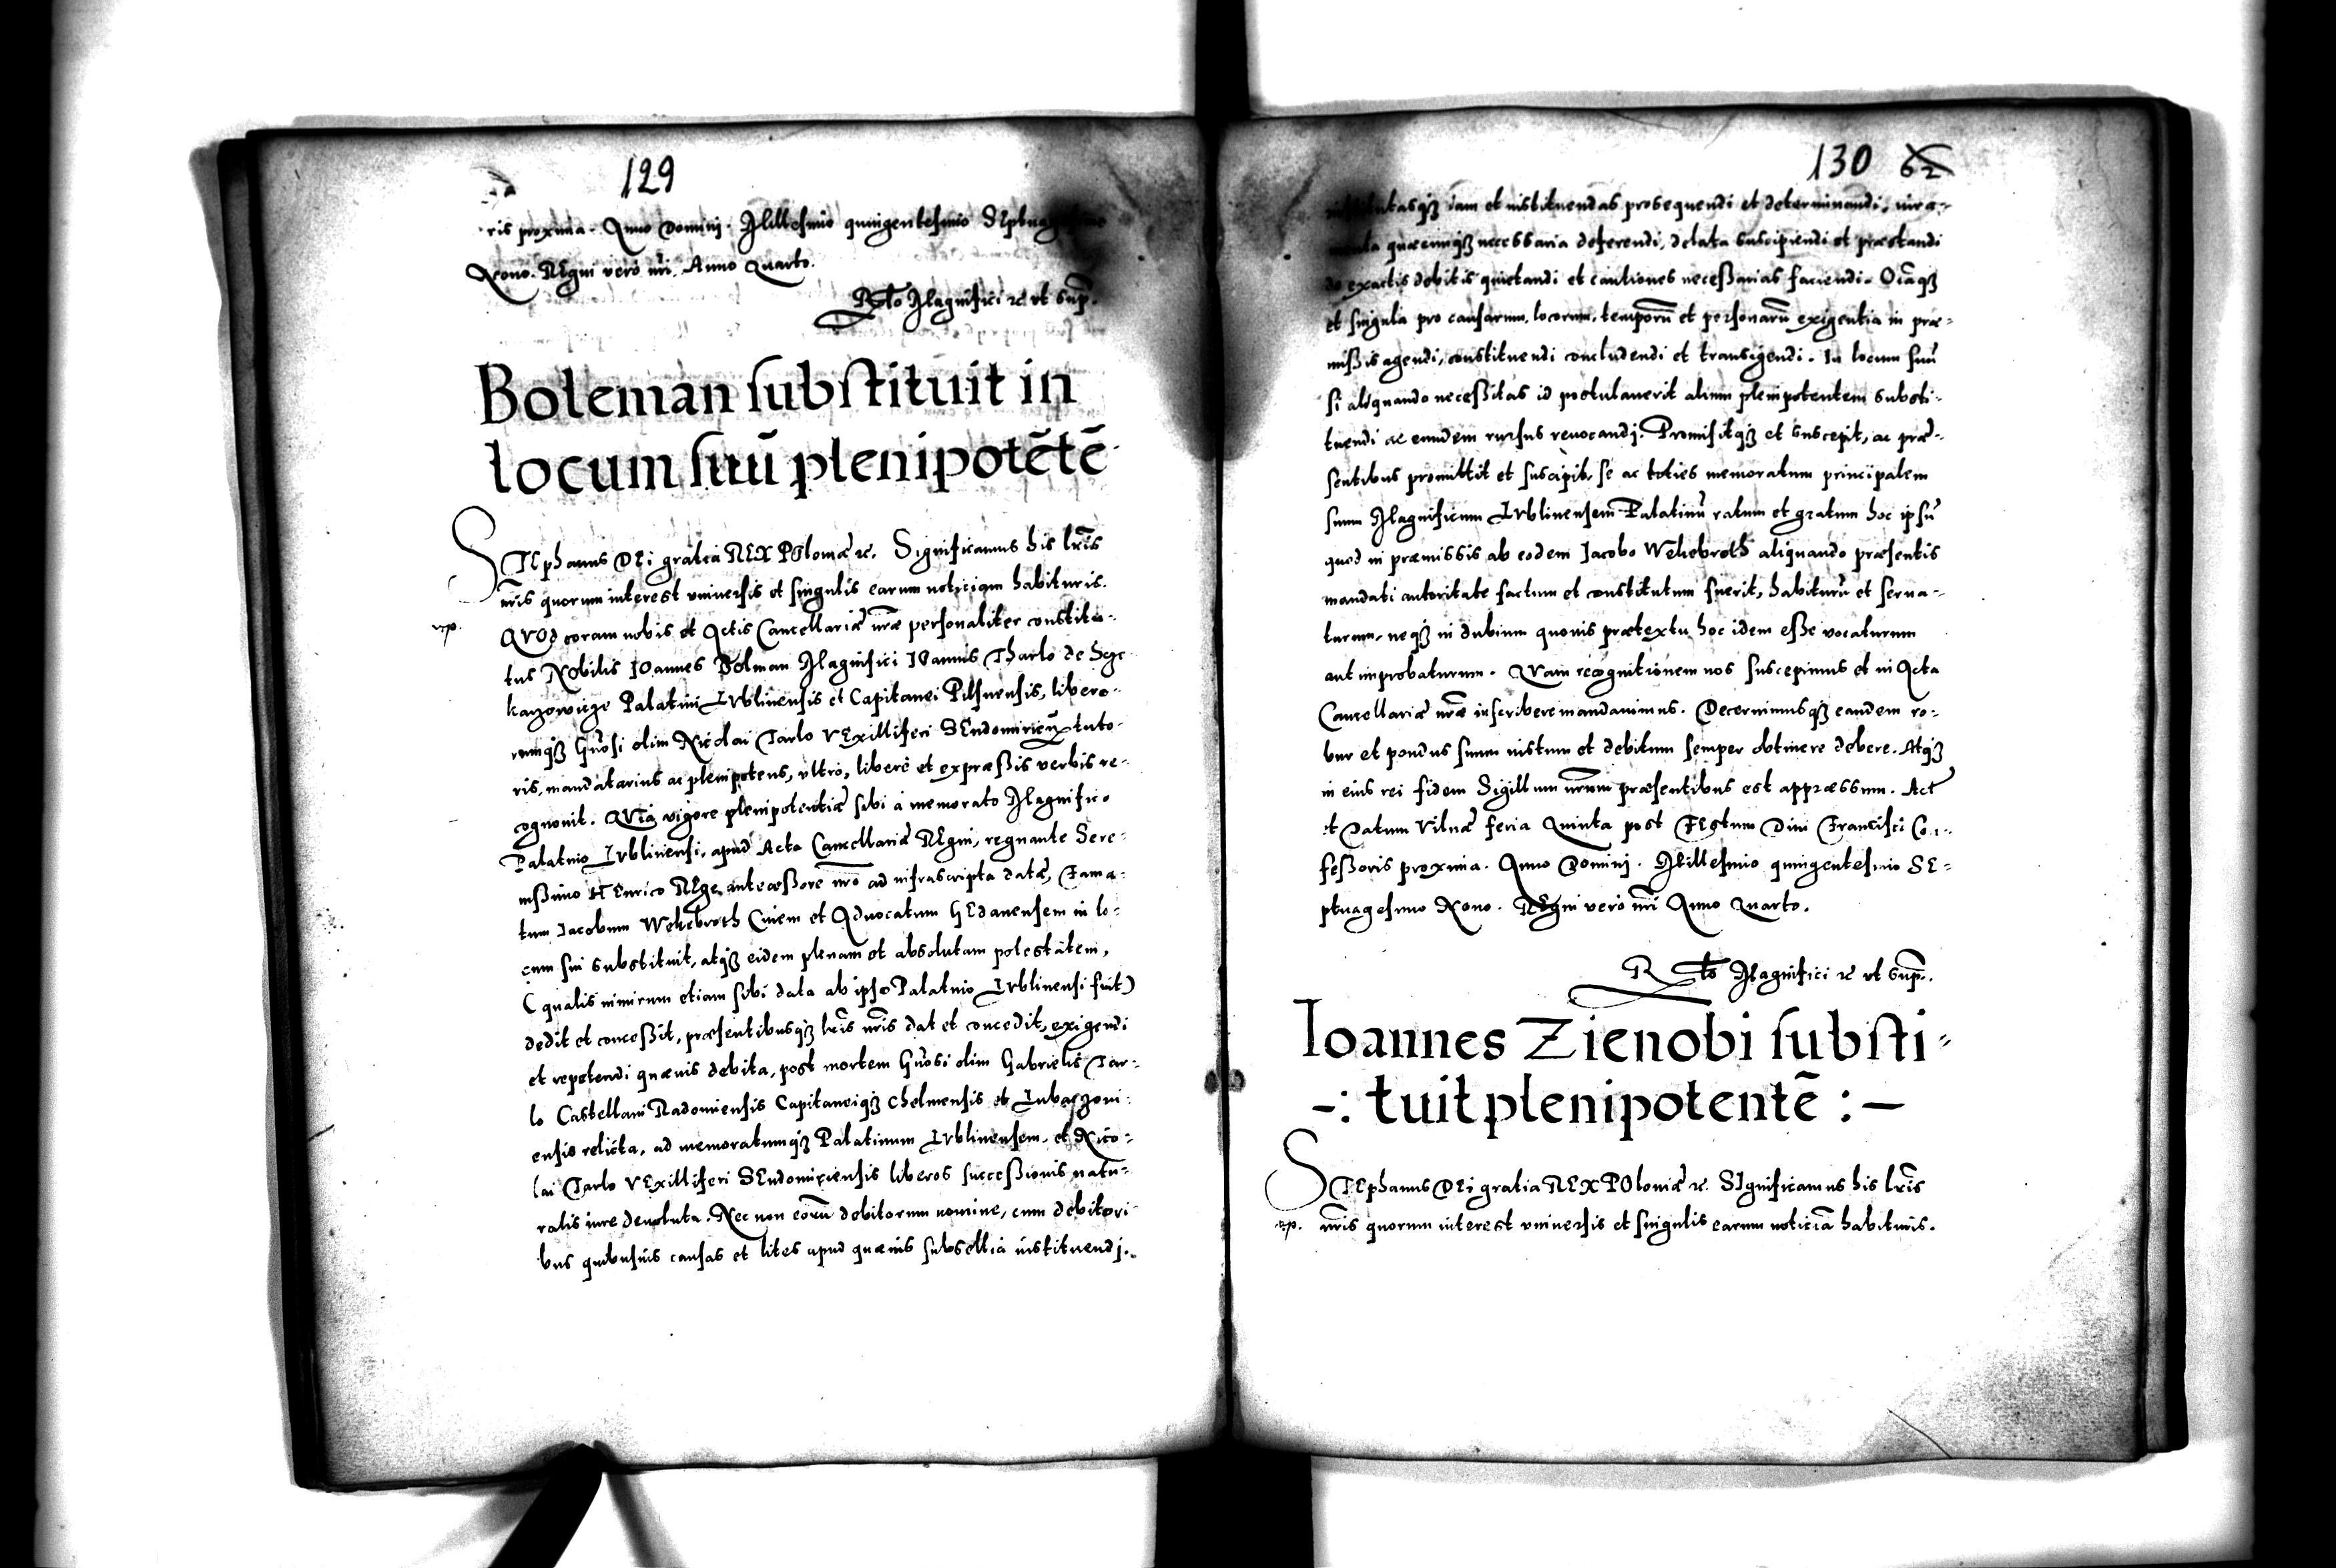 129
ris proxima. Anno Domini. Millesimo quingentesimo Septuagesimo
Nono. REgni vero nri. Anno Quarto.
Rto Magnifici &c ut sup.
Boleman substituit in
locum suū plenipotētē
STEphanus DEi gratia REX POloniæ &c. Significamus his lris
nris quorum interest vniuersis et singulis earum noticiam habituris.
QVOd coram nobis et Actis Cancellariæ nræ personaliter constitu-
tus Nobilis IOannes Bolman Magnifici IOannis Tharlo de Scze
kazowicze Palatini LVblinensis et Capitanei Pilsnensis, libero-
rumq3 Gnosi olim Nicolai Tarlo VExilliferi SEndomirien tuto-
ris, mandatarius ac plenipotens, vltro, liberè et expræssis verbis re-
cognouit. QVia vigore plenipotentiæ sibi à memorato Magnifico
Palatino LVblinensi, apud Acta Cancellariæ REgni, regnante Sere-
nissimo HEnrico REge, antecæssore nro ad infrascripta datæ, Fama-
tum Iacobum Wehebroth Ciuem et Aduocatum GEdanensem in lo-
cum sui substituit, atq3 eidem plenam et absolutam potestatem,
(qualis nimirum etiam sibi data ab ipso Palatino LVblinensi fuit)
dedit et concessit, præsentibusq3 lris nris dat et concedit, exigendi
et repetendi quæuis debita, post mortem Gnosi olim Gabrielis Tar-
lo Castellani Radomiensis Capitaneiq3 Chelmensis et Lubaczoui-
ensis relicta, ad memoratumq3 Palatinum LVblinensem, et Nico-
lai Tarlo VExilliferi SEndomiriensis liberos successionis natu-
ralis iure deuoluta. Nec non eorū debitorum nomine, cum debitori
bus quibusuis causas et lites apud quæuis subsellia instituendj.
130 62
iam et instituendas prosequendi et determinandi, iura-
quæcunq3 necessaria deferendi, delata suscipiendi et præstandi
de exactis debitis quietandi et cautiones necessarias faciendi. Oiaq3
et singula pro causarum, locorum, temporū et personarū exigentia in præ-
missis agendi, constituendi concludendi et transigendi. In locum suū
si aliquando necessitas id postulauerit alium plenipotentem substi-
tuendi ac eundem rursus reuocandj. Promisitq3 et suscepit, ac præ-
sentibus promittit et suscipit, se ac toties memoratum principalem
suum Magnificum LVblinensem Palatinū ratum et gratum hoc ipsū
quod in præmissis ab eodem Iacobo Wehebroth aliquando præsentis
mandati autoritate factum et constitutum fuerit, habiturū et serua-
turum, neq3 in dubium quouis prætextu hoc idem esse vocaturum
aut improbaturum. QVam recognitionem nos suscepimus et in Acta
Cancellariæ nræ inscribere mandauimus. Decernimusq3 eandem ro-
bur et pondus suum iustum et debitum semper obtinere debere. Atq3
in eius rei fidem Sigillum nrum præsentibus est appræssum. Act
et Datum Vilnæ feria Quinta post FEstum Diui Francisci Con-
fessoris proxima. Anno Dominj. Millesimo quingentesimo SE-
ptuagesimo Nono. REgni vero nri Anno Quarto.
Rto Magnifici &c ut sup.
Ioannes Zienobi substi-
-: tuit plenipotentē :-
STEphanus DEi gratia REX POloniæ &c. SIgnificamus his lris
nris quorum interest vniuersis et singulis earum noticiā habituris.